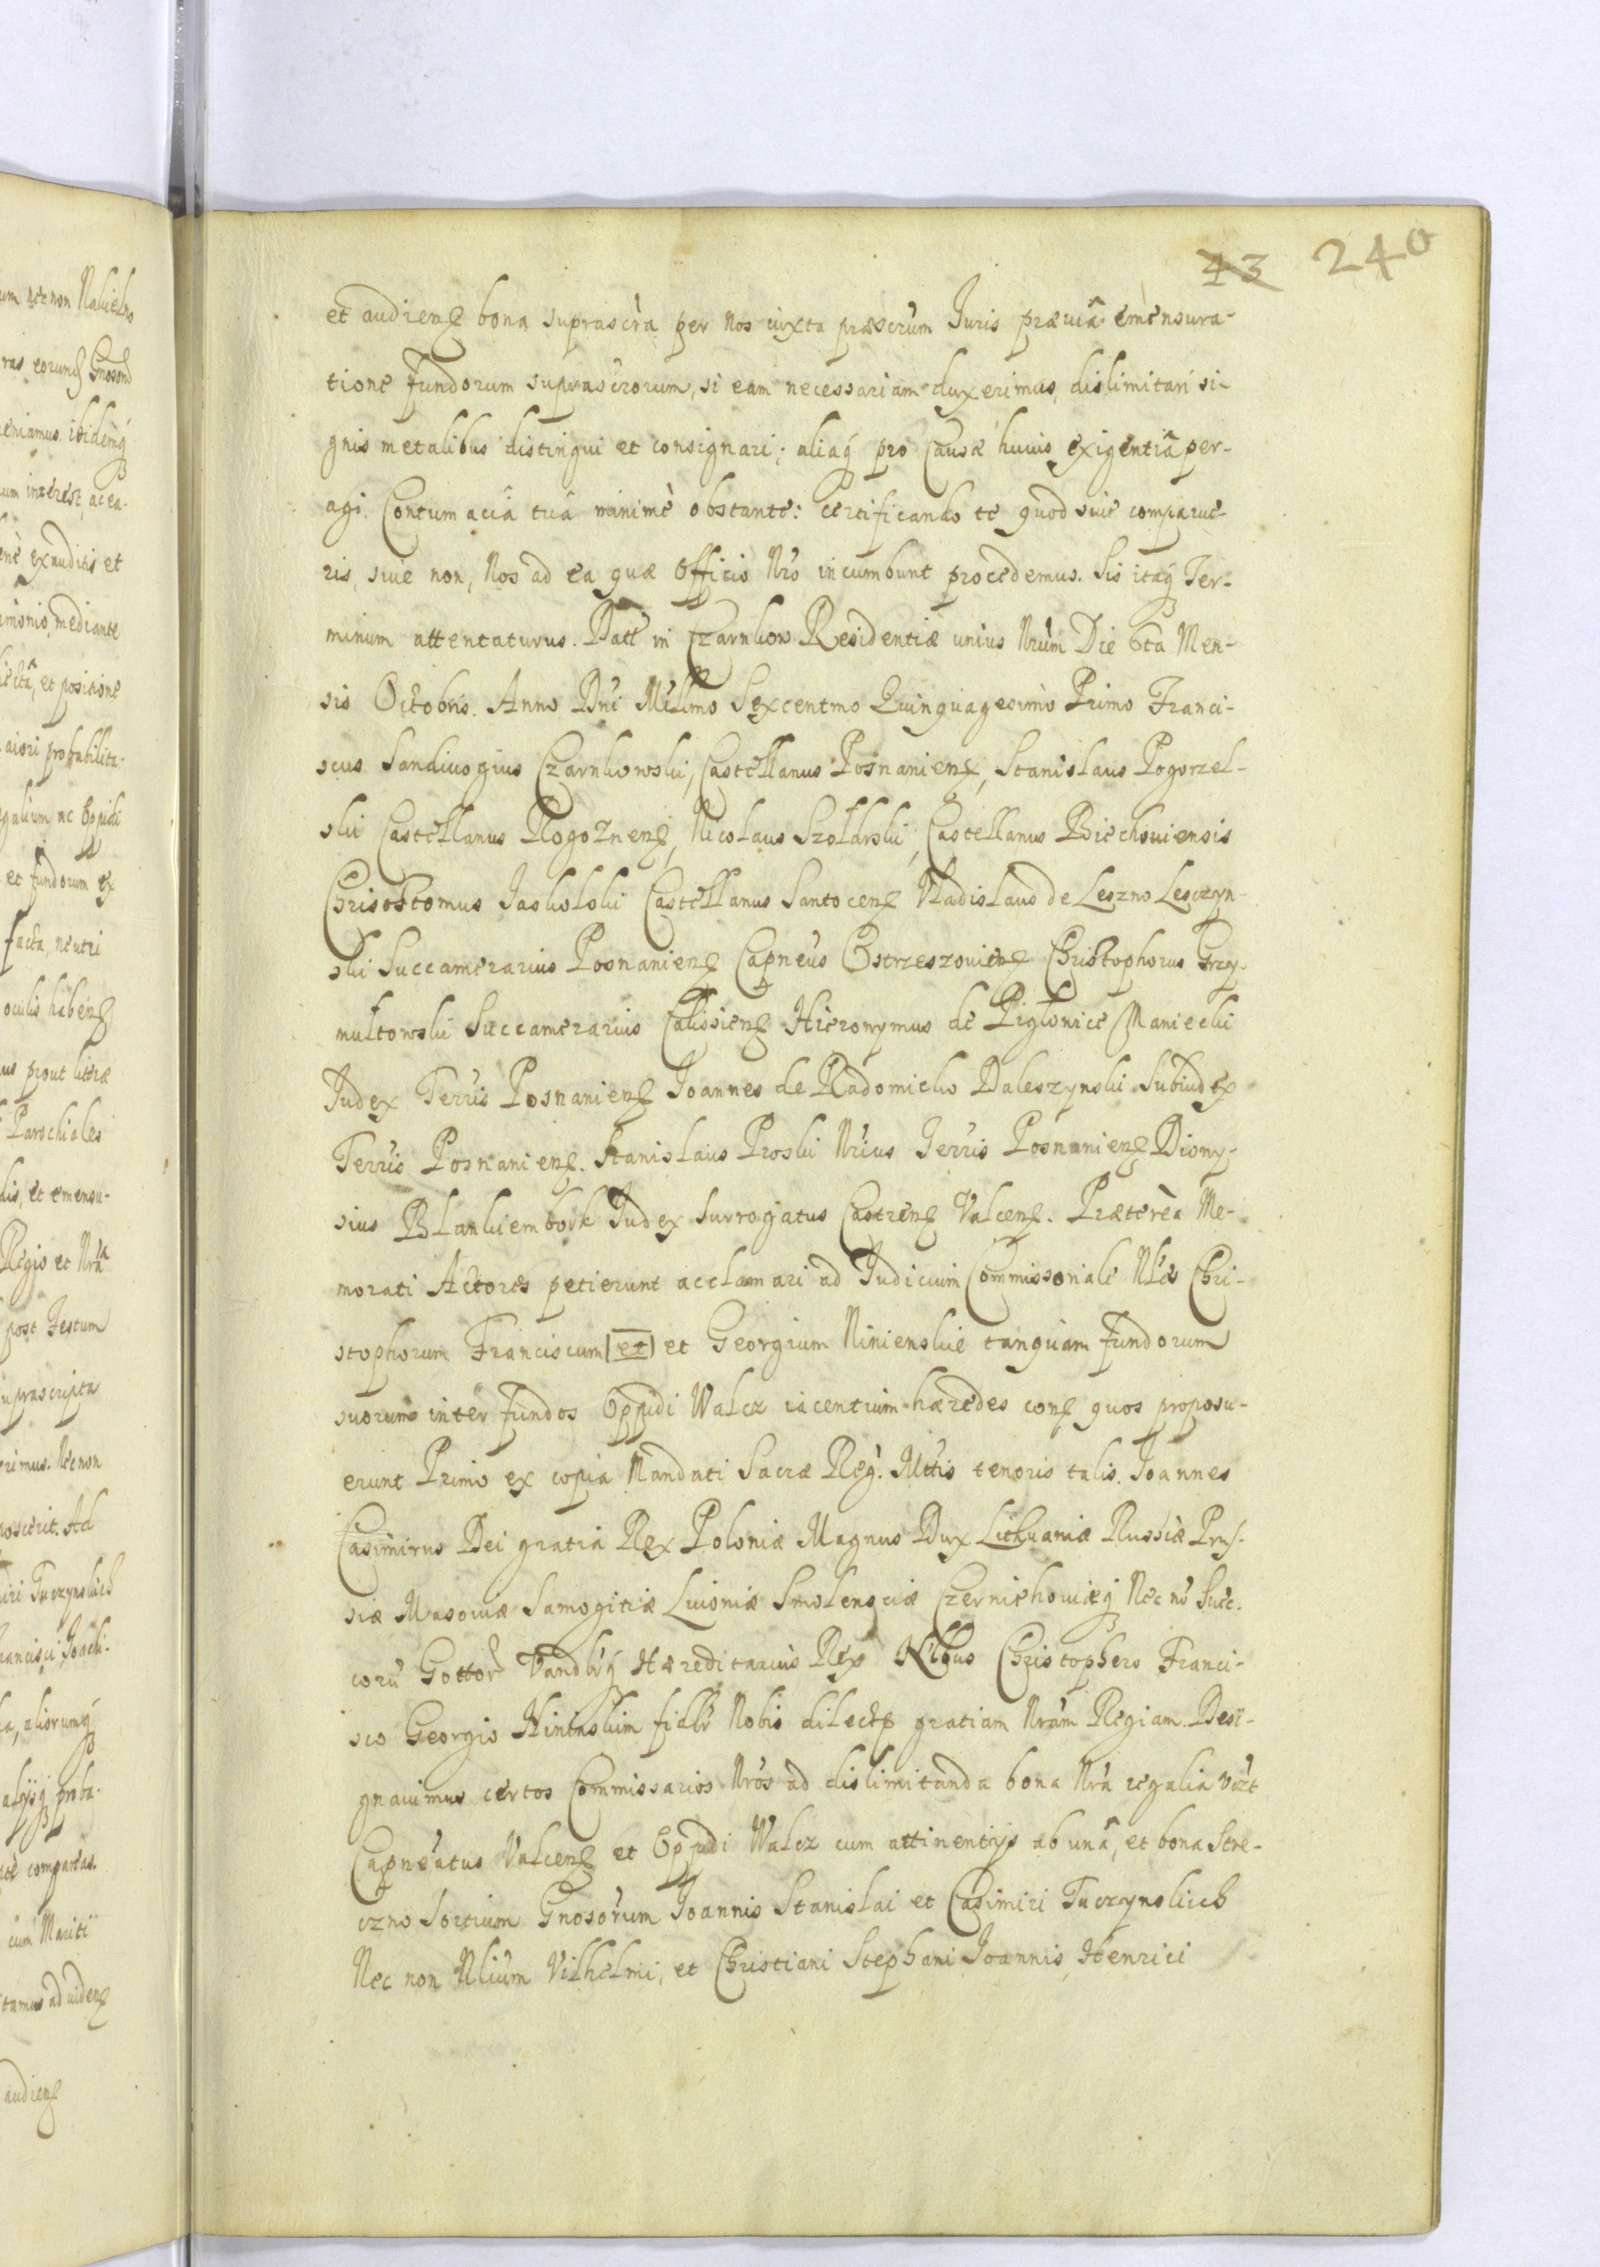 43 240
et audienꝫ bona suprascr̀a per Nos iuxta præscr̀um Juris præuiâ emensura-
tione fundorum suprascr̀orum, si eam necessariam duxerimus, dislimitari si-
gnis metalibus distingui et consignari; aliaq́ pro Causæ huius exigentiâ per-
agi. Contumaciâ tuâ minimè obstante: certificando te quod siue comparue-
ris, siue non, Nos ad ea quæ Officio Nr̀o incumbunt procedemus. Sis itaq́ Ter-
minum attentaturus. Datt in Czarnkow Residentiæ unius Nrùm Die 6ta Men-
sis Octobris. Anno Dnì Mìllmo Sexcentmo Quinquagesimo Primo Franci-
scus Sandiuogius Czarnkowski, Castellanus Posnanienꝫ, Stanislaus Pogorzel-
ski Castellanus Rogoznenꝫ, Nicolaus Szołdrski, Castellanus Biechouiensis
Chrisostomus Jaskolski Castellanus Santocenꝫ Vladislaus de Leszno Lesczyn-
ski Succamerarius Posnanienꝫ Capneus Ostrzeszouienꝫ Christophorus Grzy-
mułtowski Succamerarius Calissienꝫ Hieronymus de Piglowice Maniecki
Judex Terrìs Posnanienꝫ Joannes de Radomicko Daleszynski Subiudex
Terrìs Posnanienꝫ. Stanislaus Proski Nr̀ius Terrìs Posnanienꝫ Diony-
sius Blankiembork Judex Surrogatus Castrenꝫ Valcenꝫ. Prætereà Me-
morati Actores petierunt acclamari ad Judicium Commissoriale Nłes Chri-
stophorum Franciscum [et] et Georgium Ninienskie tanquam fundorum
suorum inter fundos Oppidi Walcz iacentium hæredes conꝫ quos proposu-
erunt Primo ex copia Mandati Sacræ Reg̀. Mttis tenoris talis. Joannes
Casimirus Dei gratia Rex Poloniæ Magnus Dux Lithuaniæ Russiæ Prus-
siæ Masouiæ Samogitiæ Liuoniæ Smolensciæ Czerniehouiæq́ Nec nò Suec-
corù Gottor̀ Vandlrq́ Hæreditarius Rex Nłbus Christophero Franci-
sco Georgio Nininskim fidlb̀ Nobis dilectꝫ gratiam Nràm Regiam. Desi-
gnauimus certos Commissarios Nròs ad dislimitanda bona Nrà regalia vizt
Capneàtus Valcenꝫ et Oppidi Walcz cum attinentijs ab unâ, et bona Stre-
czno Sortium Gnosorum Joannis Stanislai et Casimiri Tuczynskich
Nec non Nlium Vilhelmi, et Christiani Stephani Joannis, Henrici